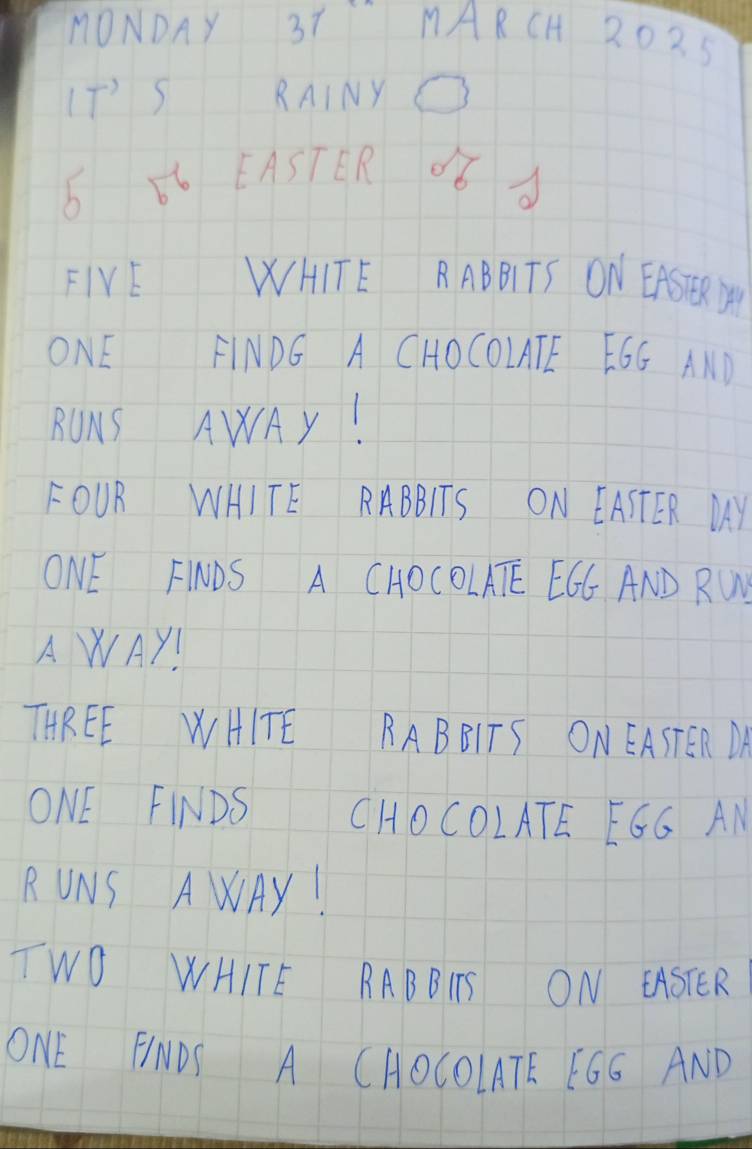 MONDAY 31 MARCH 2025
IT'S RAINY
EASTER
FIVE WHITE RABBITS ON EASTER DAY
ONE FINDG A CHOCOLATE EGG AND
RUNS AWAY!
FOUR WHITE RABBITS ON EASTER DAY
ONE FINDS A CHOCOLATE EGG AND RUNS
AWAY!
THREE WHITE RABBITS ON EASTER DA
ONE FINDS CHOCOLATE EGG AN
RUNS AWAY!
TWO WHITE RABBITS ON EASTER
ONE FINDS A CHOCOLATE EGG AND